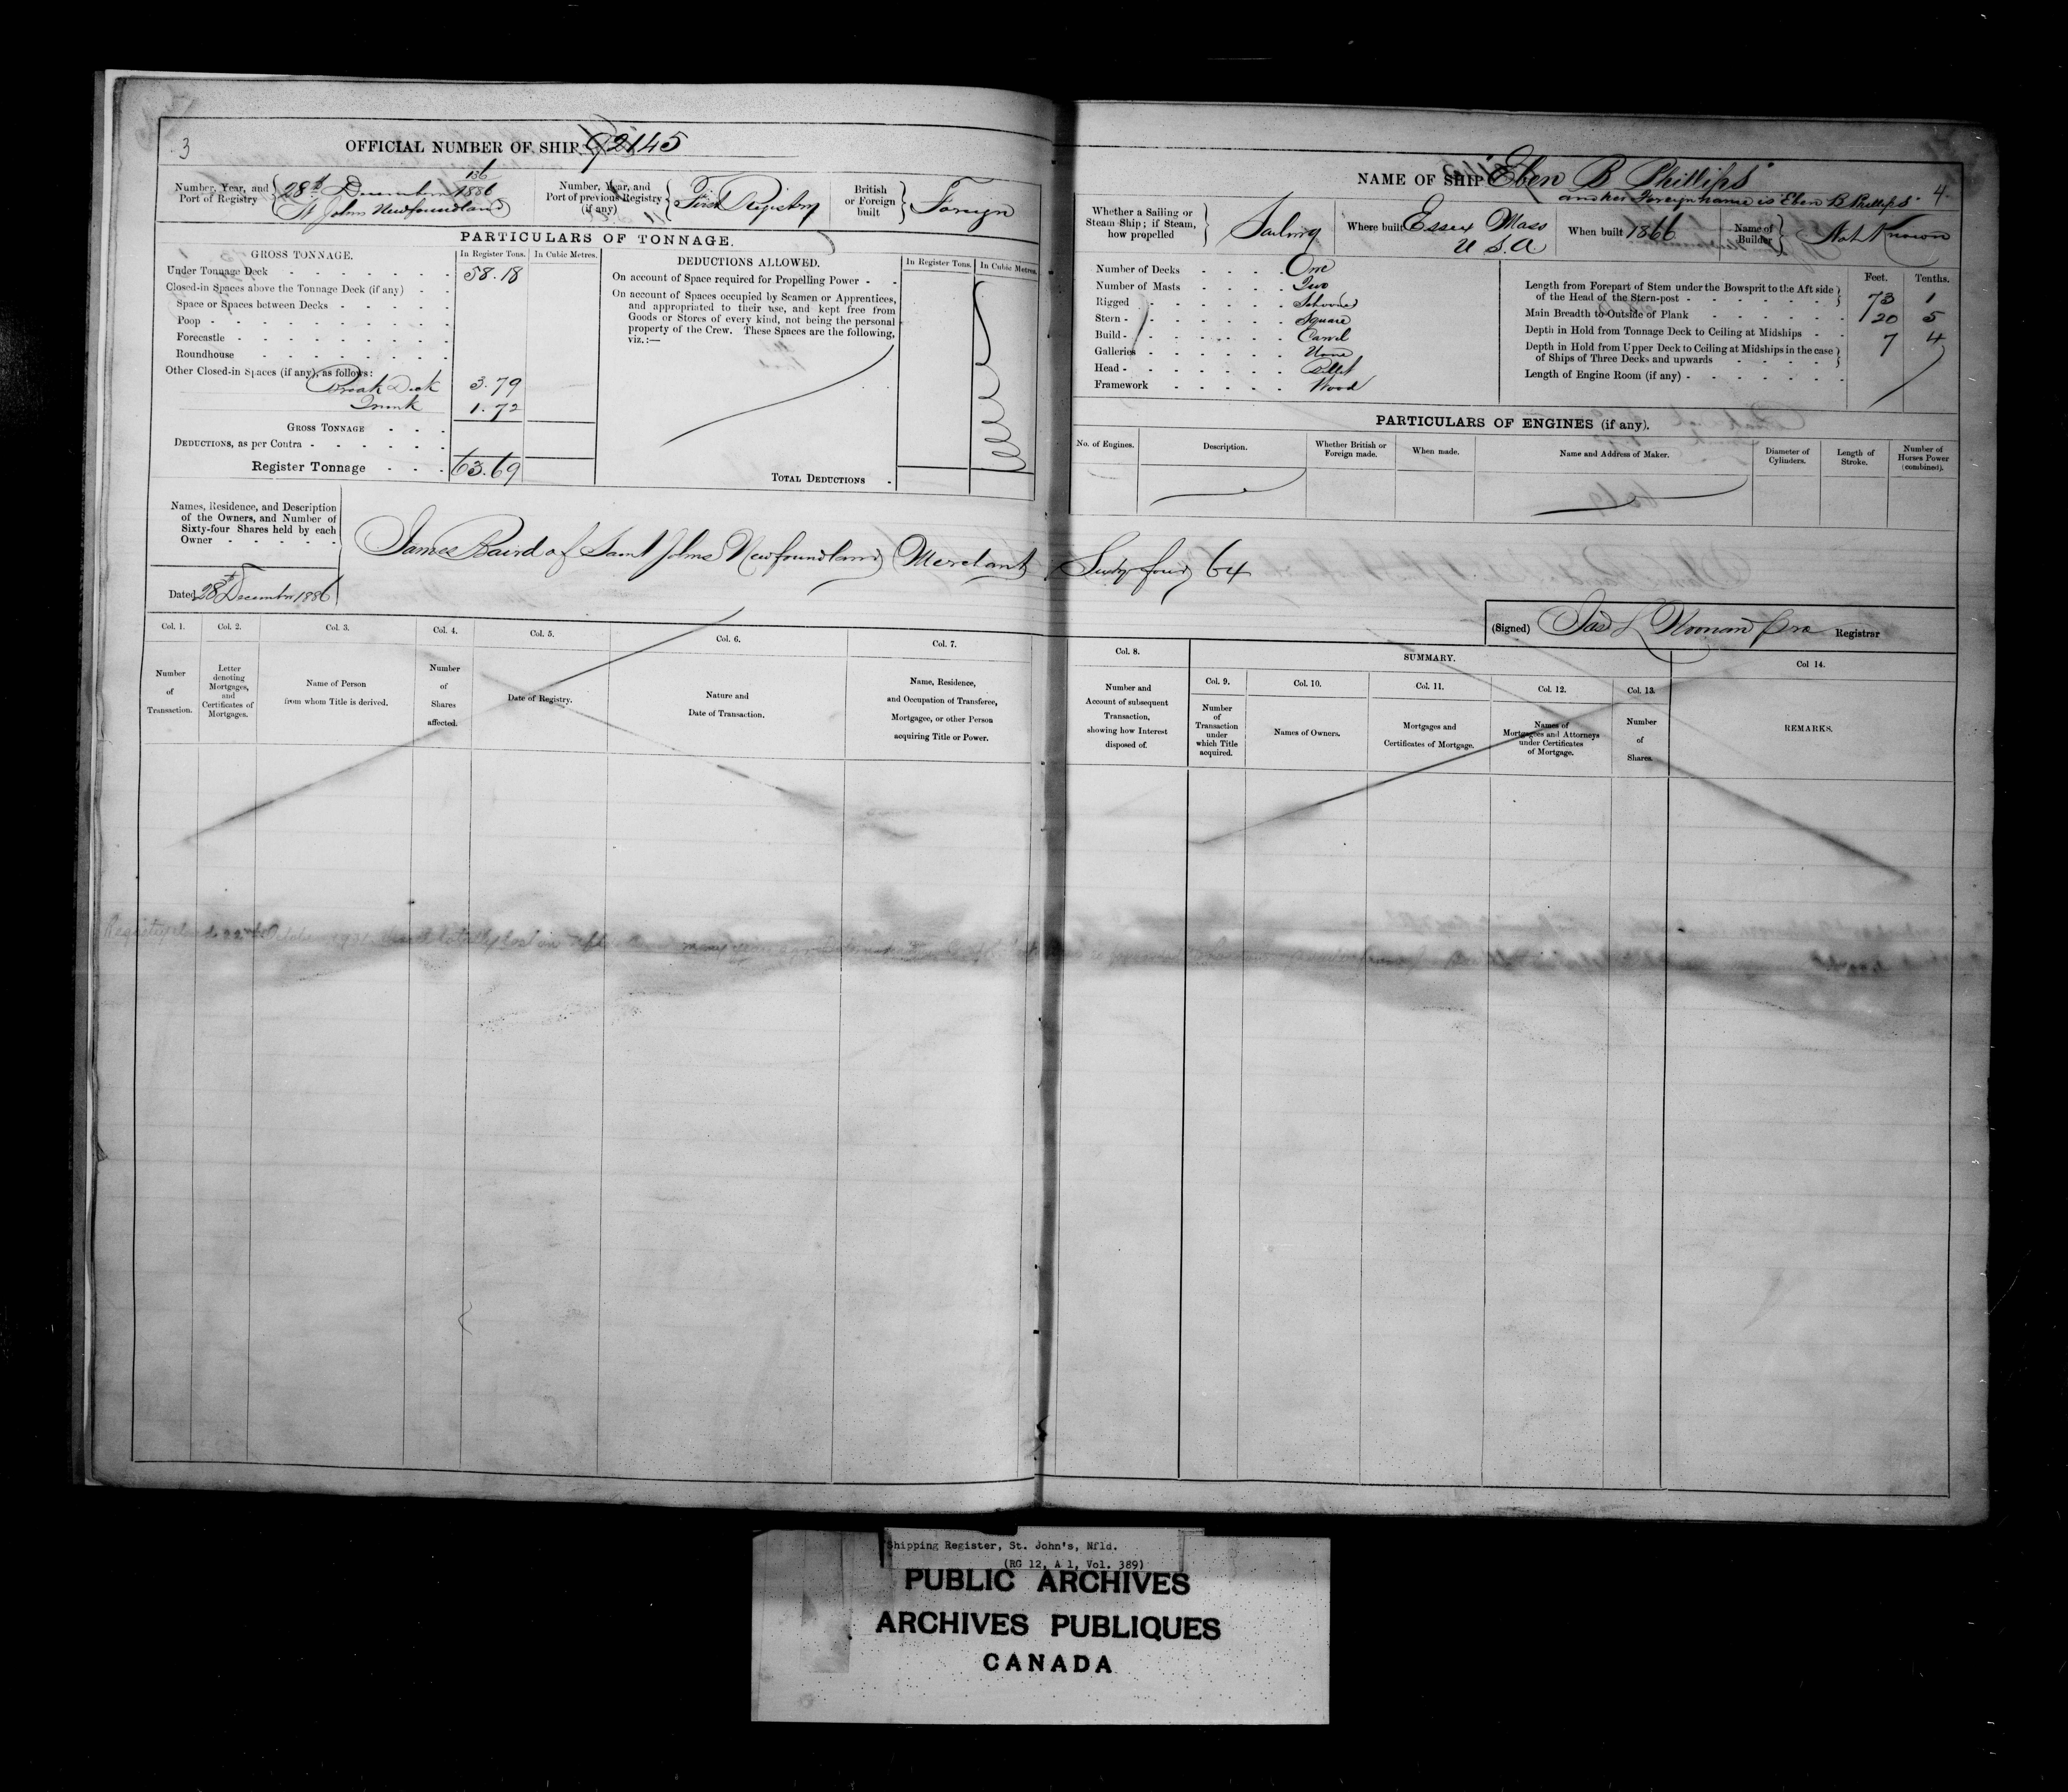 3
OFFICIAL NUMBER OF SHIP 92145
136
Number, Year, and Port of Registry { 28th December 1886 St Johns Newfoundland
Number, Year, and Port of previous Registry (if any) { First Registry
British or Foreign built } Foreign
PARTICULARS OF TONNAGE.
GROSS TONNAGE. In Register Tons. In Cubic Metres.
Under Tonnage Deck 58.18
Closed-in Spaces above the Tonnage Deck (if any)
Space or Spaces between Decks
Poop
Forecastle
Roundhouse
Other Closed-in Spaces (if any), as follows:
Break Deck 3.79
Trunk 1.72
GROSS TONNAGE
DEDUCTIONS, as per Contra
Register Tonnage 63.69
DEDUCTIONS ALLOWED. In Register Tons. In Cubic Metres.
On account of Space required for Propelling Power
On account of Spaces occupied by Seamen or Apprentices,
and appropriated to their use, and kept free from
Goods or Stores of every kind, not being the personal
property of the Crew. These Spaces are the following,
viz.:—
TOTAL DEDUCTIONS
Names, Residence, and Description
of the Owners, and Number of
Sixty-four Shares held by each
Owner
James Baird of Saint Johns Newfoundland Merchant Sixty four 64
Dated 28th December 1886
Col. 1. Col. 2. Col. 3. Col. 4. Col. 5. Col. 6. Col. 7.
Number of Transaction.
Letter denoting Mortgages, and Certificates of Mortgages.
Name of Person from whom Title is derived.
Number of Shares affected.
Date of Registry.
Nature and Date of Transaction.
Name, Residence, and Occupation of Transferee, Mortgagee, or other Person acquiring Title or Power.
NAME OF SHIP "Eben B Phillips" 4
and her Foreign name is "Eben B Phillips"
Whether a Sailing or Steam Ship; if Steam, how propelled } Sailing
Where built Essex Mass U S. A
When built 1866
Name of Builder } Not Known
Number of Decks One
Number of Masts Two
Rigged Schooner
Stern Square
Build Carvel
Galleries None
Head Billet
Framework Wood
Feet. Tenths.
Length from Forepart of Stem under the Bowsprit to the Aft side of the Head of the Stern-post 73 1
Main Breadth to Outside of Plank 20 5
Depth in Hold from Tonnage Deck to Ceiling at Midships 7 4
Depth in Hold from Upper Deck to Ceiling at Midships in the case of Ships of Three Decks and upwards
Length of Engine Room (if any)
PARTICULARS OF ENGINES (if any).
No. of Engines. Description. Whether British or Foreign made. When made. Name and Address of Maker. Diameter of Cylinders. Length of Stroke. Number of Horses Power (combined).
(Signed) Jas L Noonan Registrar
Col. 8. SUMMARY. Col 14.
Col. 9. Col. 10. Col. 11. Col. 12. Col. 13.
Number and Account of subsequent Transaction, showing how Interest disposed of.
Number of Transaction under which Title acquired.
Names of Owners.
Mortgages and Certificates of Mortgage.
Names of Mortgagees and Attorneys under Certificates of Mortgage.
Number of Shares.
REMARKS.
Shipping Register, St. John's, Nfld.
(RG 12, A 1, Vol. 389)
PUBLIC ARCHIVES
ARCHIVES PUBLIQUES
CANADA